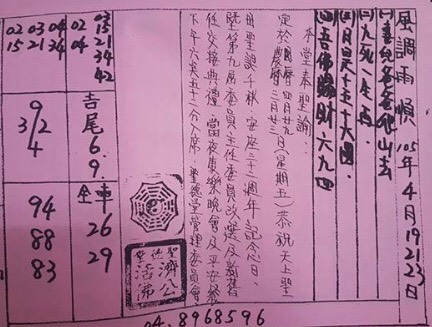 風調雨順 105年4月19 21 23日
(一) 爸爸 山去
(二)九死一生再
(三)月 十五十六圓
(四)吾佛賜財六九四
本堂奉聖諭:
定於國曆四月廿九日(星期五)恭祝天上聖
農曆三月廿三
母聖誕千秋 安座三十二週年記念日、
暨第九屆委員主任委員改選及新舊
任交接典禮 當夜康樂晚會及平安餐
下午六点五十二分入席.聖德堂管理委員會
聖德堂
濟公
活佛
02 03
04 15
21
34
42
02 03 04
15 21 34
吉尾
6.9.
9
3/2
4
全車
26
29
94
88
83
04.8968596